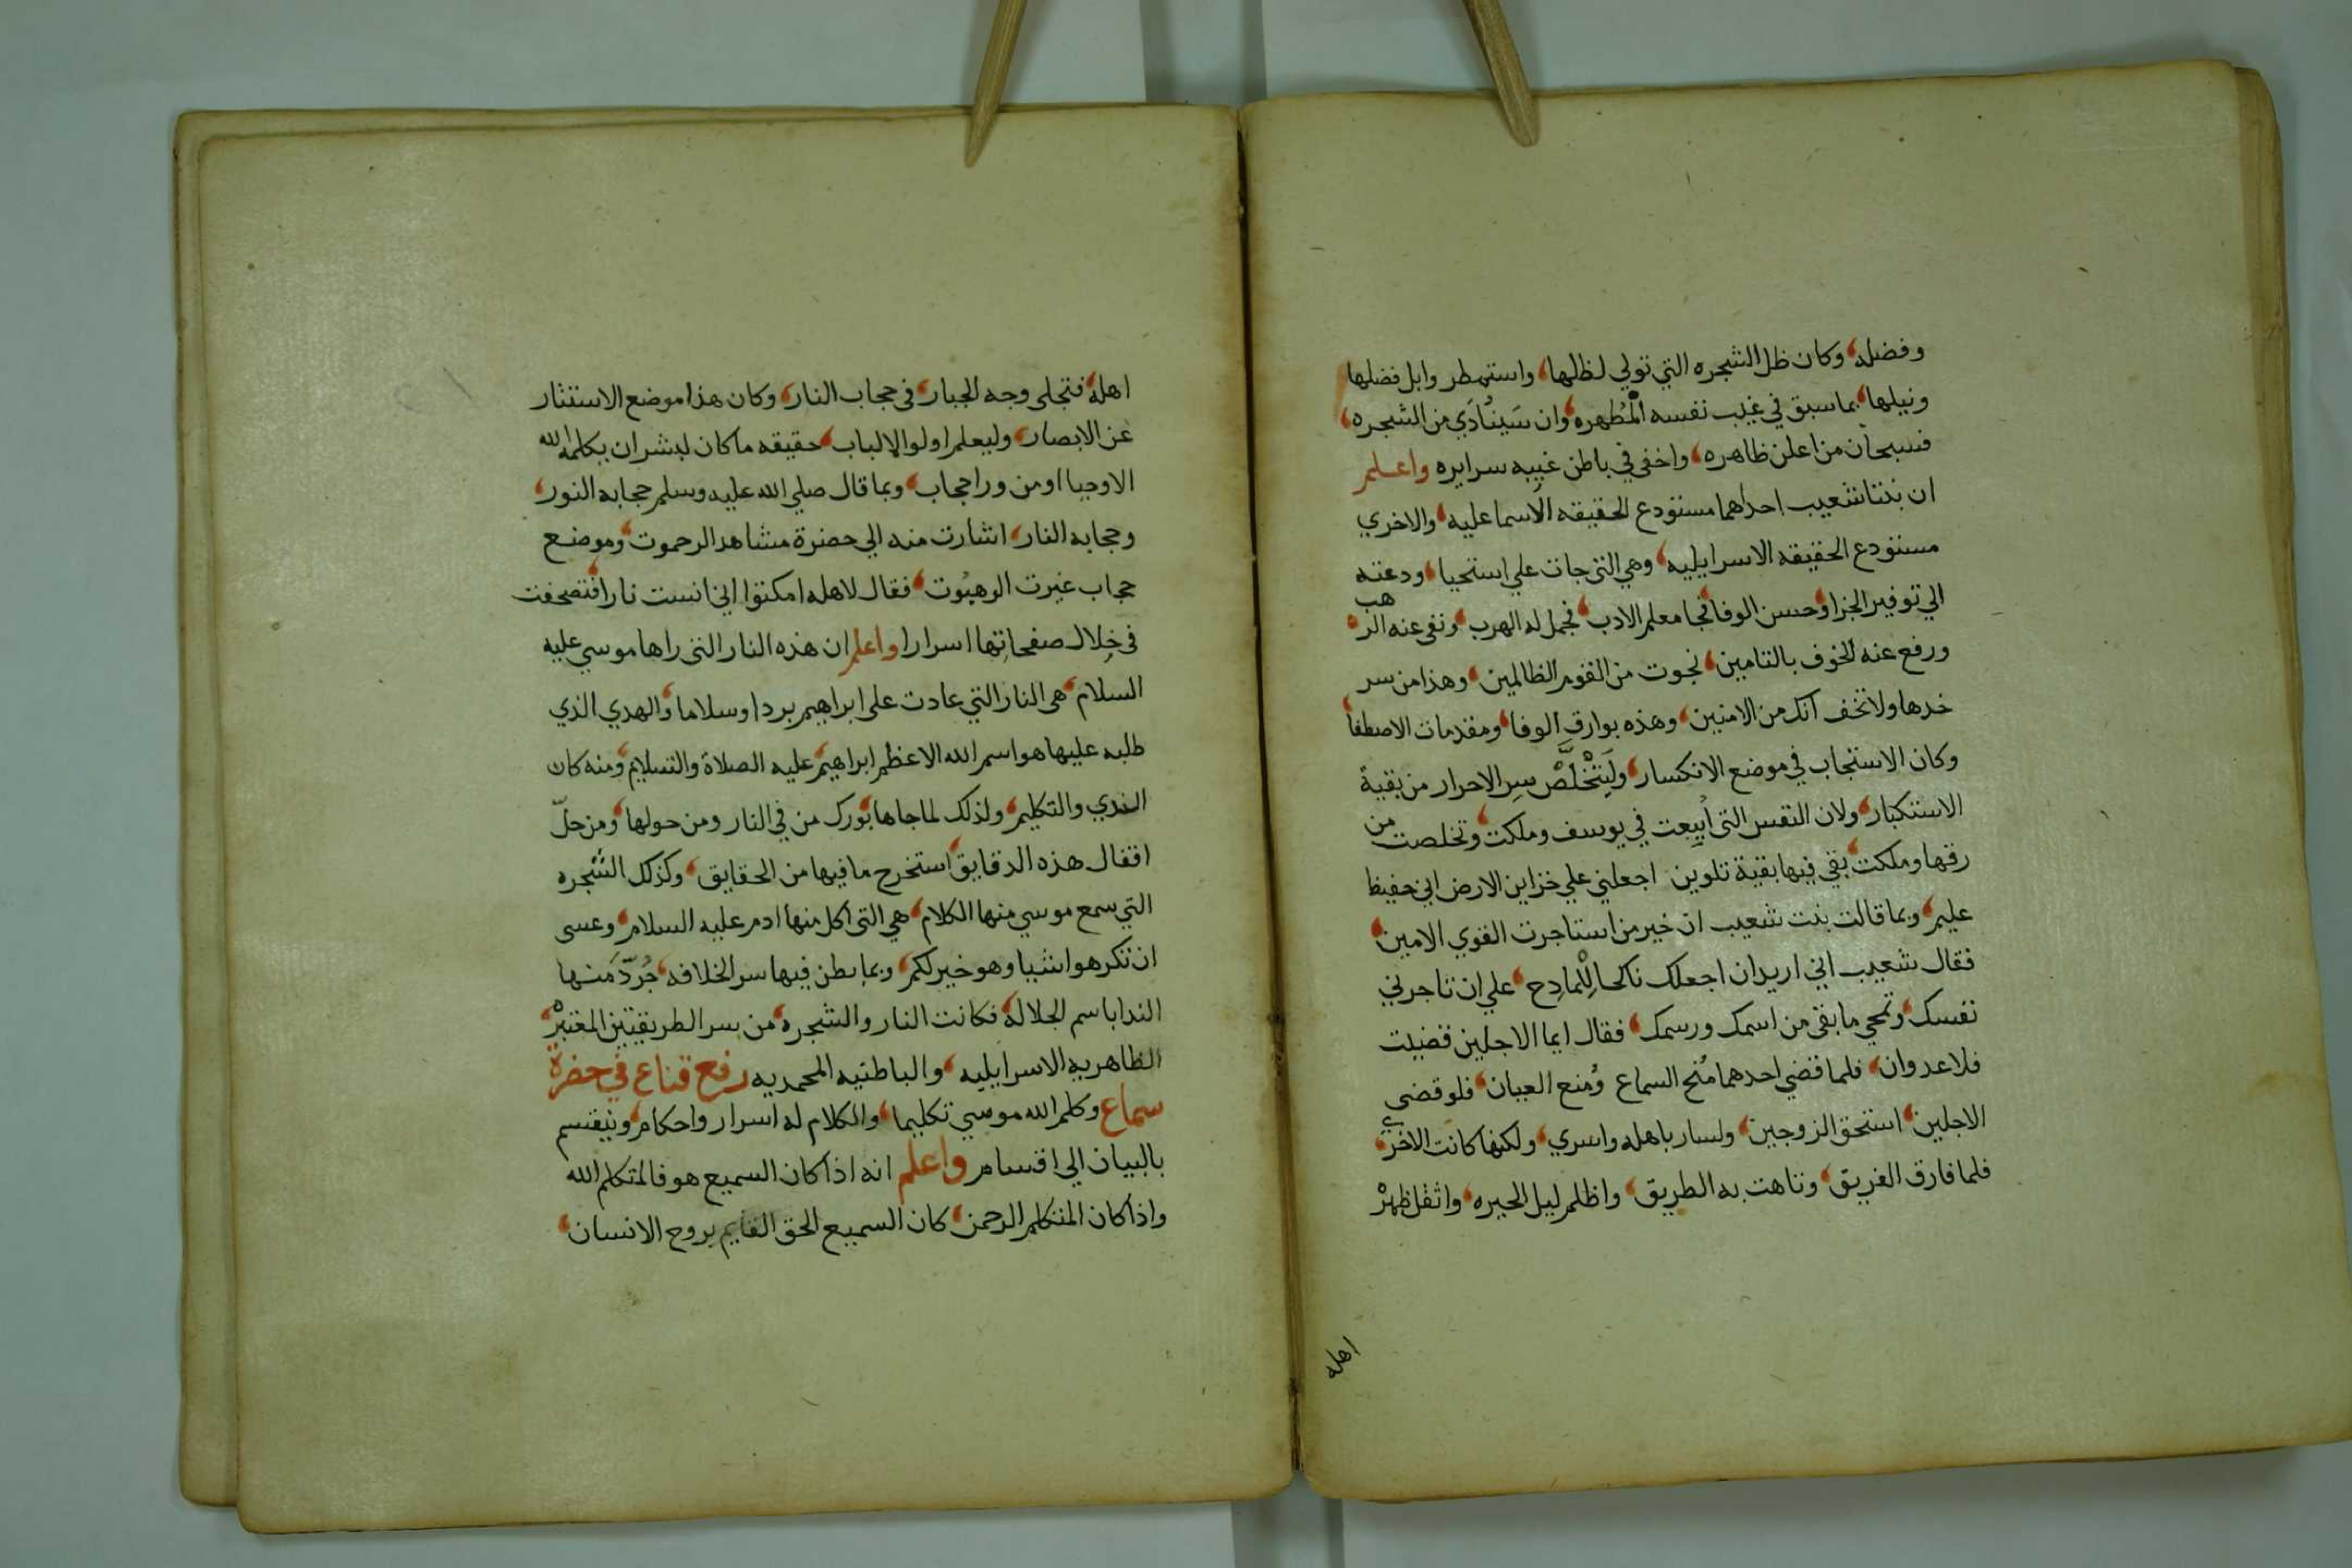 وفضله وكان ظل الشجره التي تولي لظلها واستمطر وابل فضلها
ونيلها بما سبق في غيب نفسه المُطهره وان سَيُنَادَي من الشجره
فسبحان من اعلن ظاهره واخفي في باطن غيبه سرايره واعلم
ان بنتا شعيب احداهما مستودع الحقيقه الاسماعليه والاخري
مستودع الحقيقه الاسرايليه وهي التي جات علي استحيا ودعته
الي توفير الجزا وحسن الوفا فجا معلم الادب فجمل له الهرب ونفي عنه الرهب
ورفع عنه الخوف بالتامين نجوت من القوم الظالمين وهذا من سر
خدها ولا تخف انك من الامنين وهذه بوارق الوفا ومقدمات الاصطفا
وكان الاستجاب في موضع الانكسار وليَتَخْلَّصْ سر الاحرار من بقية
الاستكبار ولان النفس التي ابيعت في يوسف وملكت وتخلصت من
رقها وملكت بقي فيها بقية تلوين اجعلني علي خزاين الارض اني حفيظ
عليم وبما قالت بنت شعيب ان خير من استاجرت القوي الامين
فقال شعيب اني اريد ان اجعلك ناكحا لِلْمادِح علي ان تاجرني
نفسك وتمحي ما بقي من اسمك ورسمك فقال ايما الاجلين قضيت
فلا عدوان فلما قضي احدهما مُنح السماع ومُنع العيان فلو قضي
الاجلين استحق الزوجين ولسار باهله واسري ولكنها كانت الاخري
فلما فارق الفريق وتاهت به الطريق واظلم ليل الحيره واثقل ظهرْ
اهله
اهله فتجلي وجه الجبار في حجاب النار وكان هذا موضع الاستتار
عن الابصار وليعلم اولوا الالباب حقيقه ما كان لبشر ان يكلمه الله
الا وحيا او من ورا حجاب وبما قال صلي الله عليه وسلم حجابه النور
وحجابه النار اشارت منه الي حضرة مشاهد الرحموت وموضع
حجاب غيرت الوهبوت فقال لاهله امكثوا اني انست نارا فتصحفت
في خلال صفحاتها اسرارا واعلم ان هذه النار التي راها موسي عليه
السلام هي النار التي عادت علي ابراهيم بردا وسلاما والهدي الذي
طلبه عليها هو اسم الله الاعظم ابراهيم عليه الصلاة والتسليم ومنه كان
الندي والتكليم ولذلك لما جاها بورك من في النار ومن حولها ومن حلّ
اقفال هذه الدقايق استخرج ما فيها من الحقايق وكذلك الشجره
التي سمع موسي منها الكلام هي التي اكل منها ادم عليه السلام وعسي
ان تكرهوا شيا وهو خير لكم وبما بطن فيها سر الخلافه جُرّدَ منها
الندا باسم الجلاله فكانت النار والشجره من سر الطريقتين المعتبرْ
الظاهريه الاسرايليه والباطنيه المحمديه رفع قناع في حضرة
سماع وكلم الله موسي تكليما والكلام له اسرار واحكام ونيقسم
بالبيان الي اقسام واعلم انه اذا كان السميع هو فالمتكلم الله
واذا كان المتكلم الرحمن كان السميع الحق القايم بروح الانسان